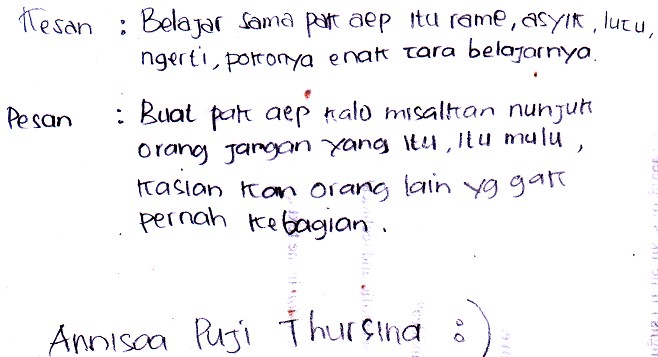 Kesan : Belajar sama pak aep itu rame, asyik, lucu,
ngerti, pokonya enak cara belajarnya.
Pesan : Buat pak aep kalo misalkan nunjuk
orang jangan yang itu, itu mulu,
kasian kan orang lain yg gak
pernah kebagian.
Annisaa Puji Thursina :)